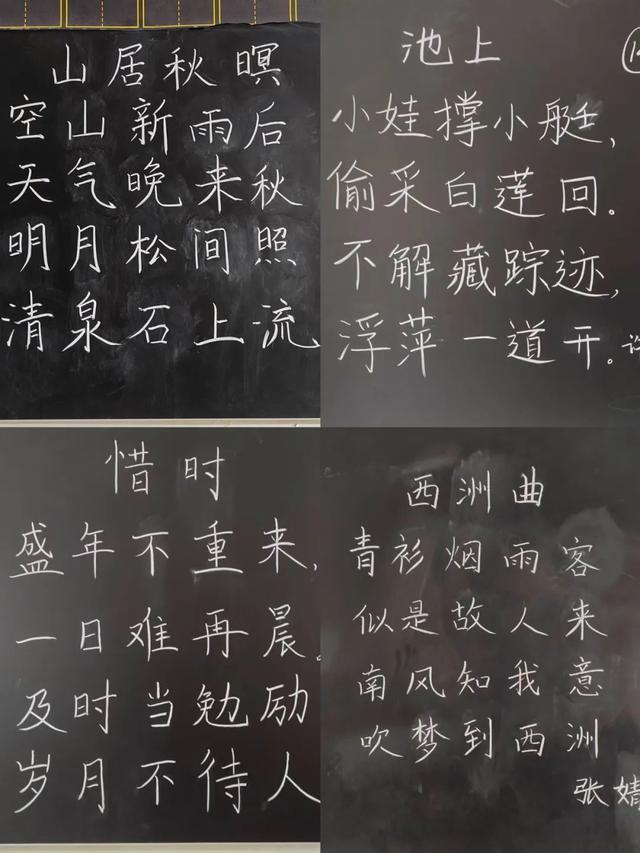 山居秋暝
空山新雨后
天气晚来秋
明月松间照
清泉石上流
池上
小娃撑小艇，
偷采白莲回。
不解藏踪迹，
浮萍一道开。
惜时
盛年不重来，
一日难再晨。
及时当勉励
岁月不待人
西洲曲
青衫烟雨客
似是故人来
南风知我意
吹梦到西洲
张婧